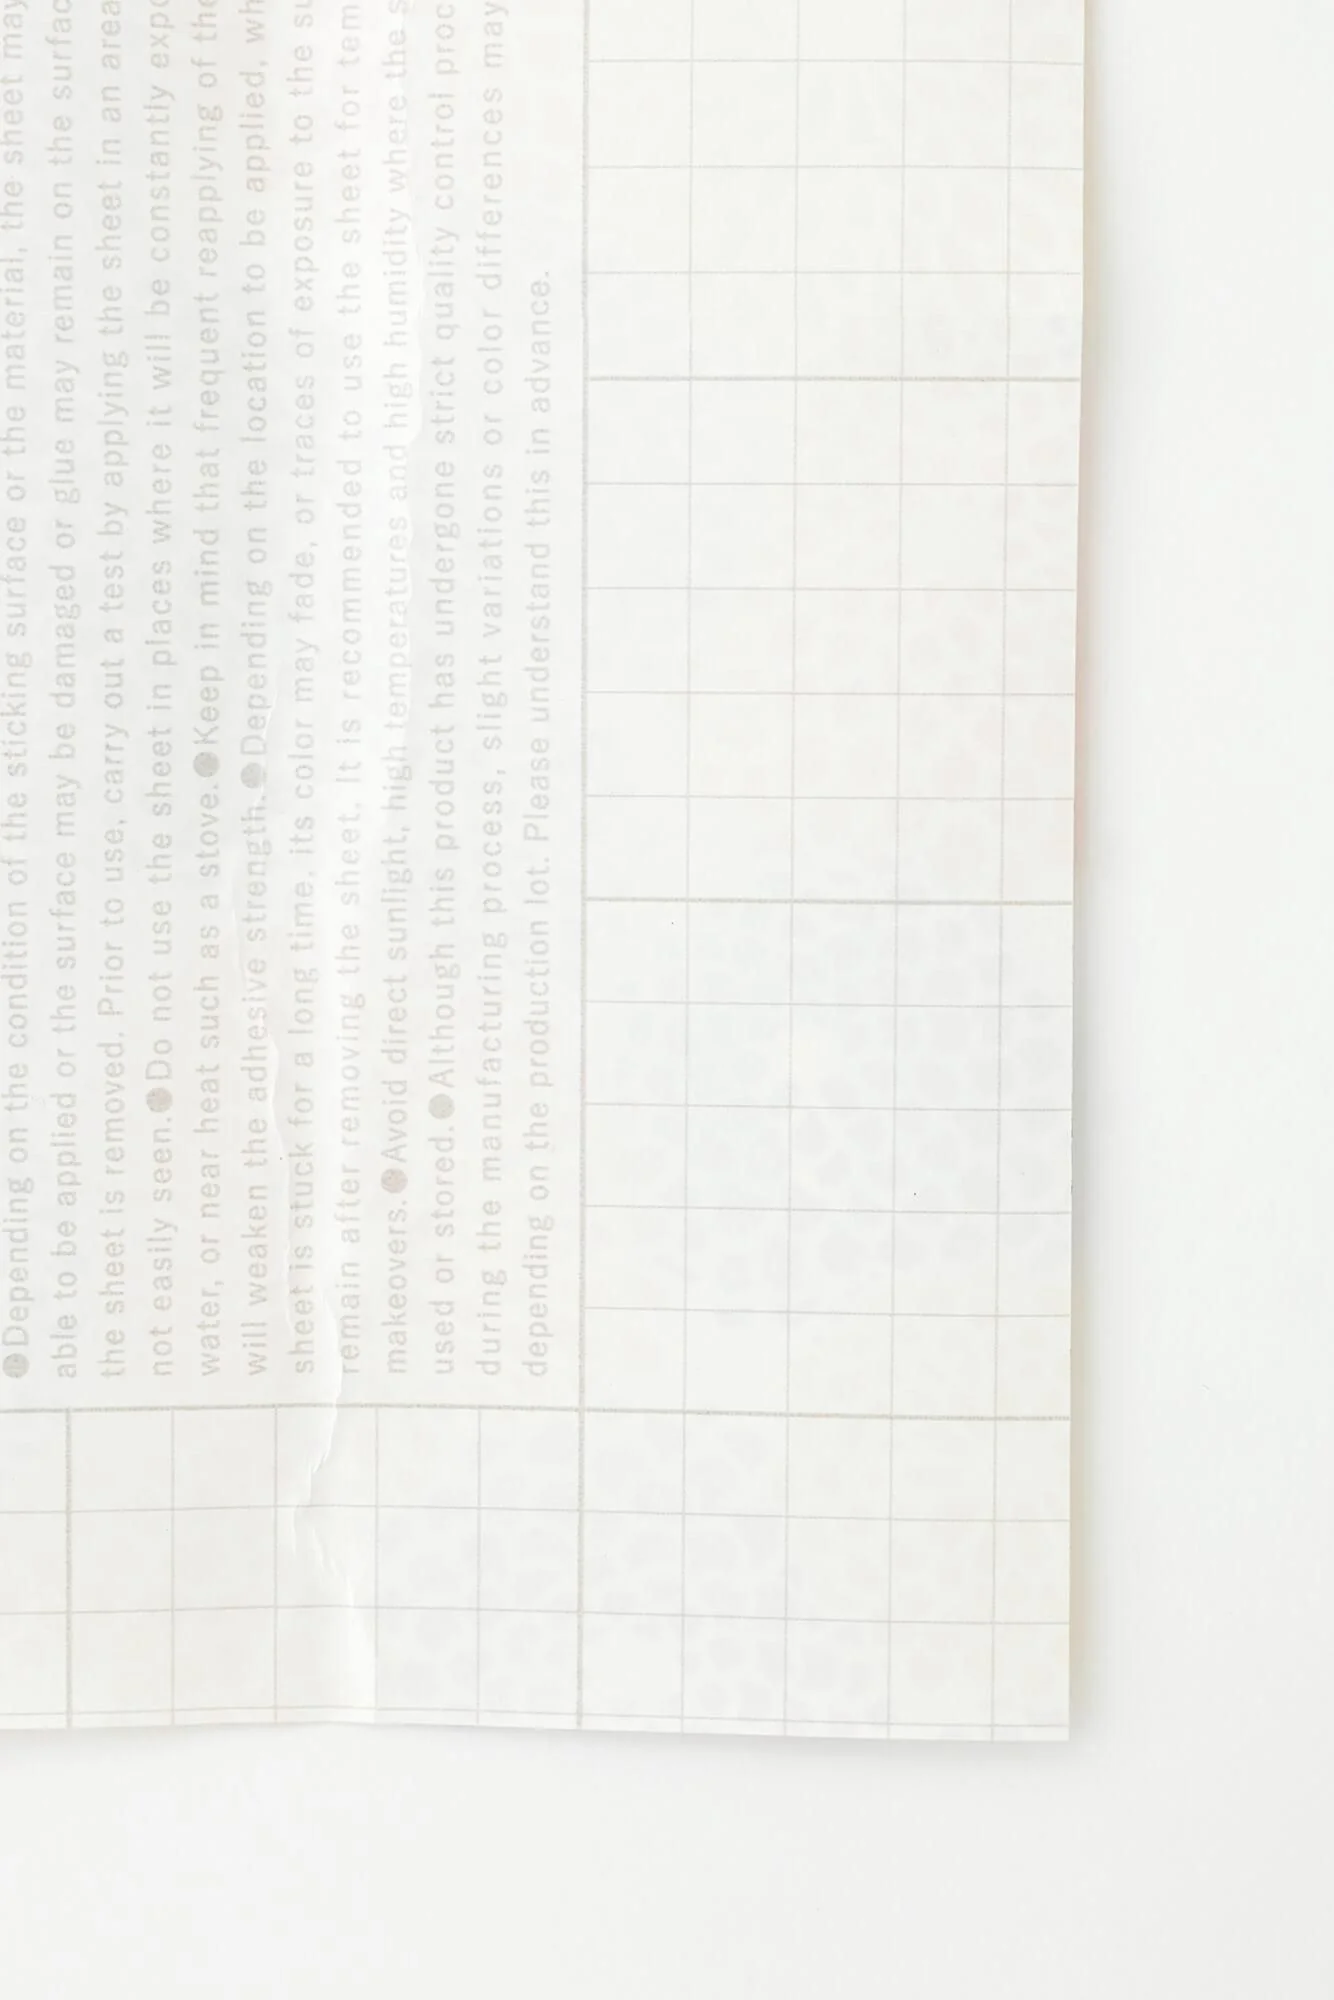 ●Depending on the condition of the sticking surface or the material, the sheet may
able to be applied or the surface may be damaged or glue may remain on the surfac
the sheet is removed. Prior to use, carry out a test by applying the sheet in an area
not easily seen.●Do not use the sheet in places where it will be constantly expo
water, or near heat such as a stove.●Keep in mind that frequent reapplying of the
will weaken the adhesive strength.●Depending on the location to be applied, wh
sheet is stuck for a long time, its color may fade, or traces of exposure to the su
remain after removing the sheet. It is recommended to use the sheet for tem
makeovers.●Avoid direct sunlight, high temperatures and high humidity where the s
used or stored.●Although this product has undergone strict quality control proc
during the manufacturing process, slight variations or color differences may
depending on the production lot. Please understand this in advance.